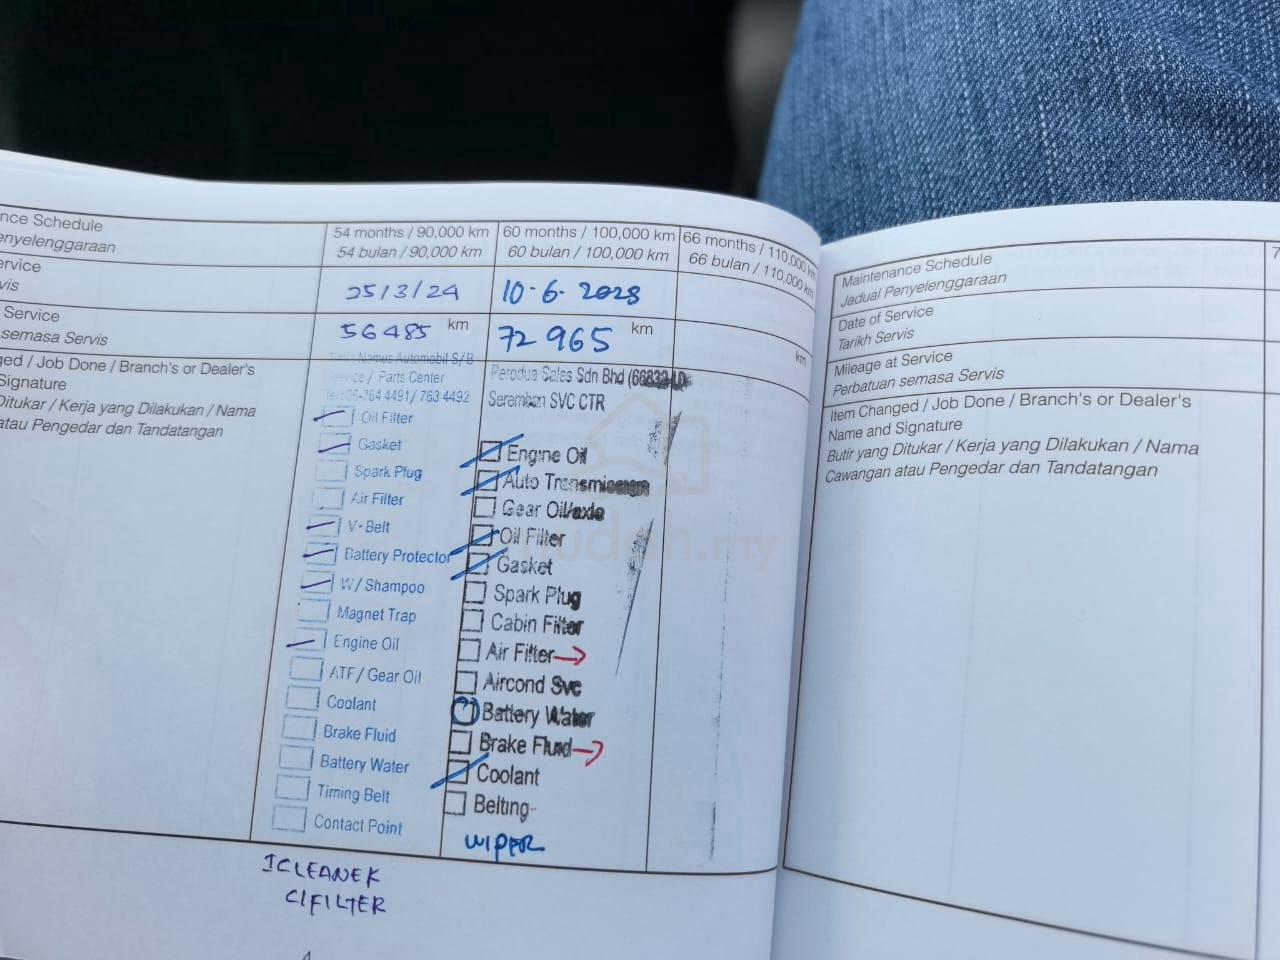 nce Schedule
enyelenggaraan
54 months / 90,000 km
54 bulan / 90,000 km
60 months / 100,000 km
60 bulan / 100,000 km
66 months / 110,000 km
66 bulan / 110,000 km
ervice
vis
25/3/24
Service
semasa Servis
56485 km
72965 km
km
ed / Job Done / Branch's or Dealer's
Signature
Ditukar / Kerja yang Dilakukan / Nama
atau Pengedar dan Tandatangan
Namus Automobil S/B
/ Parts Center
06-764 4491/ 763 4492
Oil Filter
Gasket
Spark Plug
Air Filter
V-Belt
Battery Protector
W/Shampoo
Magnet Trap
Engine Oil
ATF/Gear Oil
Coolant
Brake Fluid
Battery Water
Timing Belt
Contact Point
Perodua Sales Sdn Bhd
Seremban SVC CTR
Engine Oil
Auto Transmission
Gear Oil/axle
Oil Filter
Gasket
Spark Plug
Cabin Filter
Air Filter →
Aircond Svc
Battery Water
Brake Fluid →
Coolant
Belting
WIPER
CIFILTER
Maintenance Schedule
Jadual Penyelenggaraan
Date of Service
Tarikh Servis
Mileage at Service
Perbatuan semasa Servis
Item Changed / Job Done / Branch's or Dealer's
Name and Signature
Butir yang Ditukar / Kerja yang Dilakukan / Nama
Cawangan atau Pengedar dan Tandatangan
7
mudah.my